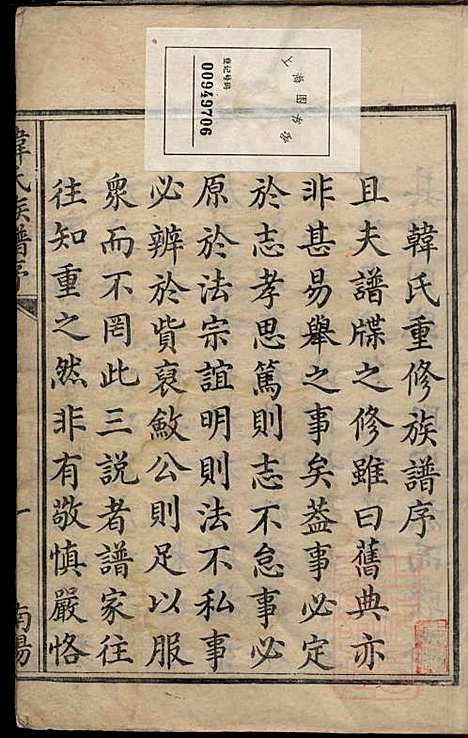 韓氏重修族譜序
且夫譜牒之修雖曰舊典亦
非甚易舉之事矣葢事必定
於志孝思篤則志不怠事必
原於法宗誼明則法不私事
必辨於貲裒斂公則足以服
衆而不罔此三說者譜家徃
徃知重之然非有敬慎嚴恪
韓氏族譜序
一
南陽
登记号码
00949706